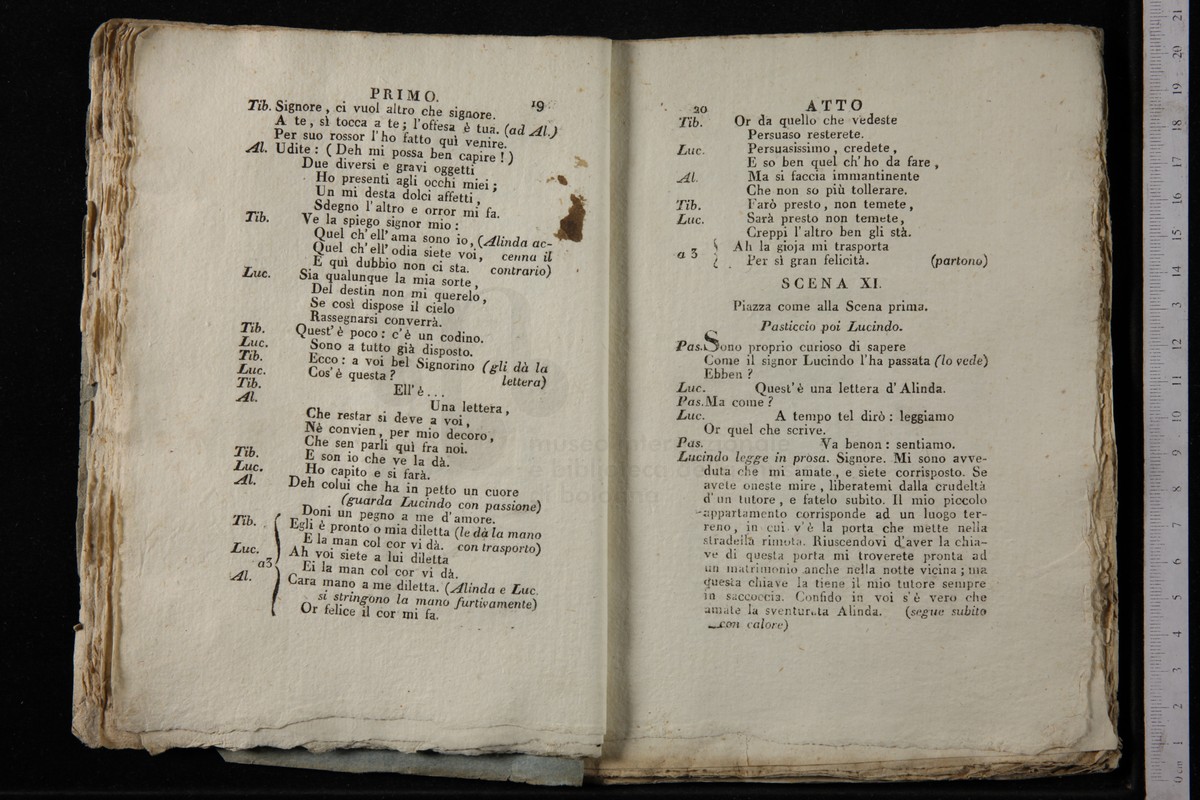 PRIMO. 19
Tib. Signore, ci vuol altro che signore.
A te, sì tocca a te; l'offesa è tua. (ad Al.)
Per suo rossor l'ho fatto quì venire.
Al. Udite: (Deh mi possa ben capire!)
Due diversi e gravi oggetti
Ho presenti agli occhi miei;
Un mi desta dolci affetti,
Sdegno l'altro e orror mi fa.
Tib. Ve la spiego signor mio:
Quel ch'ell'ama sono io, (Alinda ac-
Quel ch'ell'odia siete voi, cenna il
E quì dubbio non ci sta. contrario)
Luc. Sia qualunque la mia sorte,
Del destin non mi querelo,
Se così dispose il cielo
Rassegnarsi converrà.
Tib. Quest'è poco: c'è un codino.
Luc. Sono a tutto già disposto.
Tib. Ecco: a voi bel Signorino (gli dà la
Luc. Cos'è questa? lettera)
Tib. Ell'è...
Al. Una lettera,
Che restar si deve a voi,
Nè convien, per mio decoro,
Che sen parli quì fra noi.
Tib. E son io che ve la dà.
Luc. Ho capito e si farà.
Al. Deh colui che ha in petto un cuore
(guarda Lucindo con passione)
Doni un pegno a me d'amore.
Tib. Egli è pronto o mia diletta (le dà la mano
E la man col cor vi dà. con trasporto)
Luc. Ah voi siete a lui diletta
a3 Ei la man col cor vi dà.
Al. Cara mano a me diletta. (Alinda e Luc.
si stringono la mano furtivamente)
Or felice il cor mi fa.
20 ATTO
Tib. Or da quello che vedeste
Persuaso resterete.
Luc. Persuasissimo, credete,
E so ben quel ch'ho da fare,
Al. Ma si faccia immantinente
Che non so più tollerare.
Tib. Farò presto, non temete,
Luc. Sarà presto non temete,
Creppi l'altro ben gli stà.
a 3 Ah la gioja mi trasporta
Per sì gran felicità. (partono)
SCENA XI.
Piazza come alla Scena prima.
Pasticcio poi Lucindo.
Pas. Sono proprio curioso di sapere
Come il signor Lucindo l'ha passata (lo vede)
Ebben?
Luc. Quest'è una lettera d'Alinda.
Pas. Ma come?
Luc. A tempo tel dirò: leggiamo
Or quel che scrive.
Pas. Va benon: sentiamo.
Lucindo legge in prosa. Signore. Mi sono avve-
duta che mi amate, e siete corrisposto. Se
avete oneste mire, liberatemi dalla crudeltà
d'un tutore, e fatelo subito. Il mio piccolo
appartamento corrisponde ad un luogo ter-
reno, in cui v'è la porta che mette nella
stradella rimota. Riuscendovi d'aver la chia-
ve di questa porta mi troverete pronta ad
un matrimonio anche nella notte vicina; ma
questa chiave la tiene il mio tutore sempre
in saccoccia. Confido in voi s'è vero che
amate la sventurata Alinda. (segue subito
con calore)